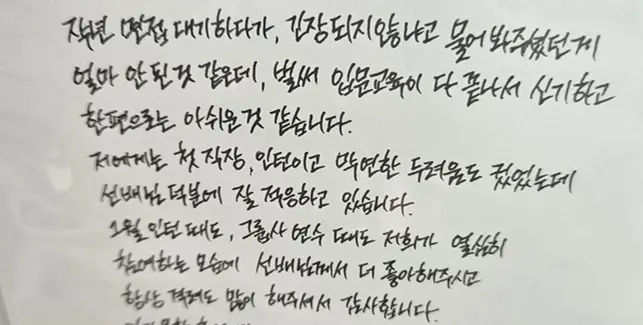 작년 면접 대기하다가, 긴장되지않냐고 물어봐주셨던게
얼마 안 된것 같은데, 벌써 입문교육이 다 끝나서 신기하고
한편으로는 아쉬운것 같습니다.
저에게는 첫 직장, 인턴이고 막연한 두려움도 컸었는데
선배님 덕분에 잘 적응하고 있습니다.
1월 인턴 때도, 그룹사 연수 때도 저희가 열심히
참여하는 모습에 선배님께서 더 좋아해주시고
항상 격려도 많이 해주셔서 감사합니다.